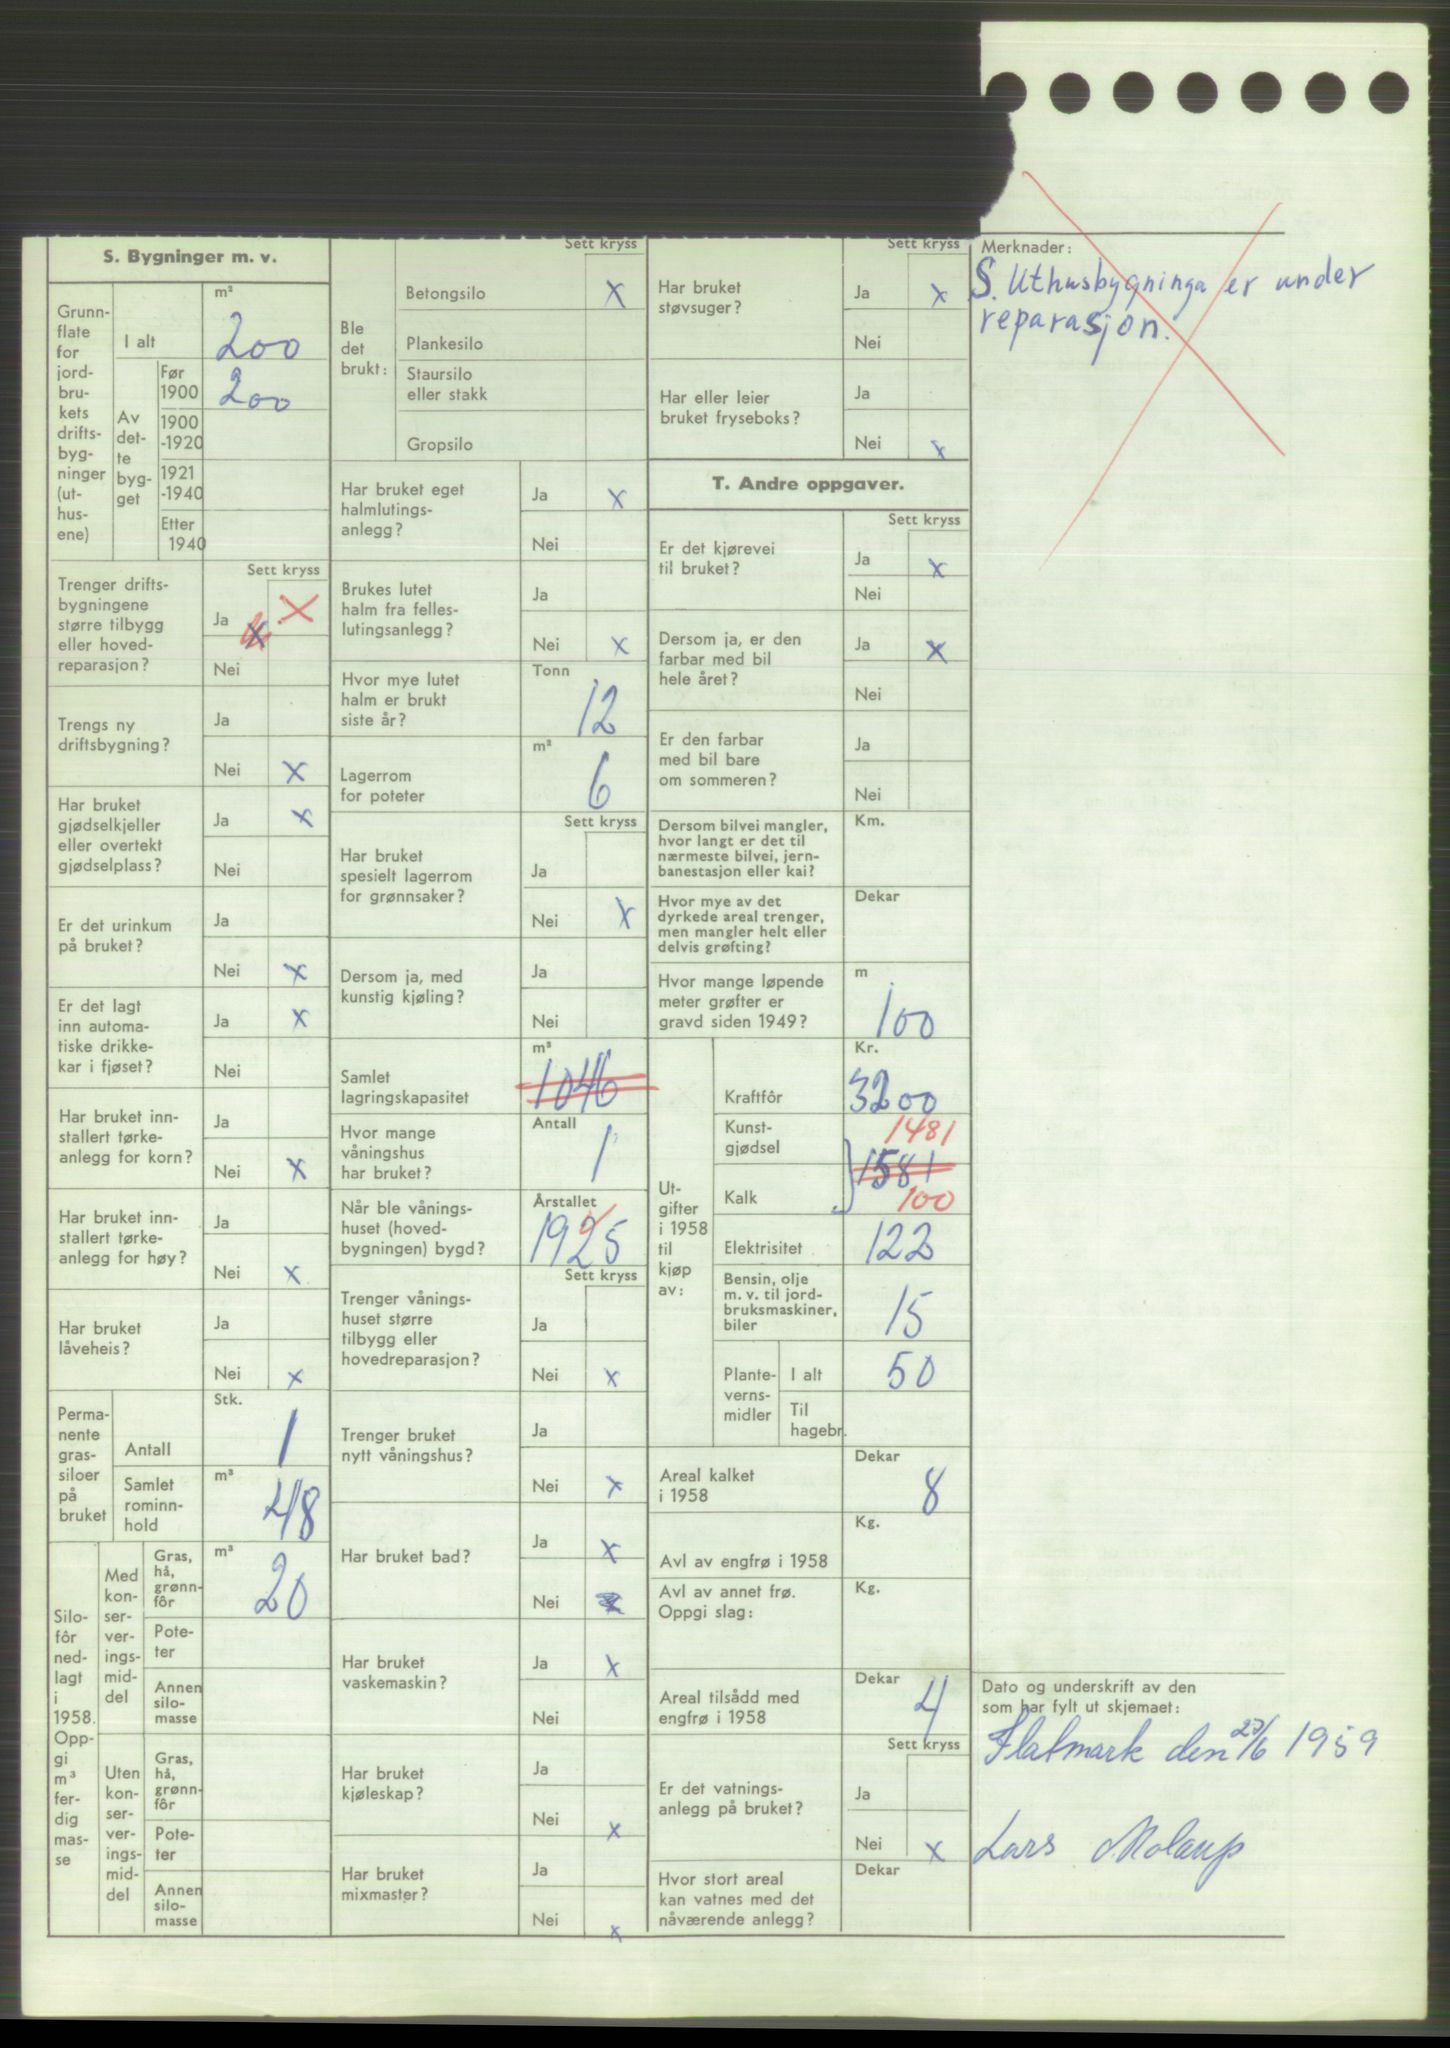 S. Bygninger m. v.
Grunn-
flate
for
jord-
bru-
kets
drifts-
byg-
ninger
(ut-
hus-
ene)
I alt
m²
200
Av
det-
te
byg-
get
Før
1900
200
1900
-1920
1921
-1940
Etter
1940
Sett kryss
Trenger drifts-
bygningene
større tilbygg
eller hoved-
reparasjon?
Ja
x
X
Nei
Trengs ny
driftsbygning?
Ja
Nei
x
Har bruket
gjødselkjeller
eller overtekt
gjødselplass?
Ja
x
Nei
Er det urinkum
på bruket?
Ja
Nei
x
Er det lagt
inn automa-
tiske drikke-
kar i fjøset?
Ja
x
Nei
Har bruket inn-
stallert tørke-
anlegg for korn?
Ja
Nei
x
Har bruket inn-
stallert tørke-
anlegg for høy?
Ja
Nei
x
Har bruket
låveheis?
Ja
Nei
x
Perma-
nente
gras-
siloer
på
bruket
Antall
Stk.
1
Samlet
rominn-
hold
m³
48
Silo-
fôr
ned-
lagt
i
1958.
Opp-
gi
m³
fer-
dig
mas-
se
Med
kon-
ser-
ver-
ings-
mid-
del
Gras,
hå,
grønn-
fôr
m³
20
Pote-
ter
Annen
silo-
masse
Uten
kon-
ser-
ver-
ings-
mid-
del
Gras,
hå,
grønn-
fôr
Pote-
ter
Annen
silo-
masse
Sett kryss
Ble
det
brukt:
Betongsilo
x
Plankesilo
Staursilo
eller stakk
Gropsilo
Har bruket eget
halmlutings-
anlegg?
Ja
x
Nei
Brukes lutet
halm fra felles-
lutingsanlegg?
Ja
Nei
x
Hvor mye lutet
halm er brukt
siste år?
Tonn
12
Lagerrom
for poteter
m³
6
Sett kryss
Har bruket
spesielt lagerrom
for grønnsaker?
Ja
Nei
x
Dersom ja, med
kunstig kjøling?
Ja
Nei
Samlet
lagringskapasitet
m³
1046
Hvor mange
våningshus
har bruket?
Antall
1
Når ble vånings-
huset (hoved-
bygningen) bygd?
Årstallet
1925
Sett kryss
Trenger vånings-
huset større
tilbygg eller
hovedreparasjon?
Ja
Nei
x
Trenger bruket
nytt våningshus?
Ja
Nei
x
Har bruket bad?
Ja
x
Nei
Har bruket
vaskemaskin?
Ja
x
Nei
Har bruket
kjøleskap?
Ja
Nei
x
Har bruket
mixmaster?
Ja
Nei
x
Sett kryss
Har bruket
støvsuger?
Ja
x
Nei
Har eller leier
bruket fryseboks?
Ja
Nei
x
T. Andre oppgaver.
Sett kryss
Er det kjørevei
til bruket?
Ja
x
Nei
Dersom ja, er den
farbar med bil
hele året?
Ja
x
Nei
Er den farbar
med bil bare
om sommeren?
Ja
Nei
Dersom bilvei mangler,
hvor langt er det til
nærmeste bilvei, jern-
banestasjon eller kai?
Km.
Hvor mye av det
dyrkede areal trenger,
men mangler helt eller
delvis grøfting?
Dekar
Hvor mange løpende
meter grøfter er
gravd siden 1949?
m
100
Ut-
gifter
i 1958
til
kjøp
av:
Kr.
Kraftfôr
3200
Kunst-
gjødsel
1481
1581
Kalk
100
Elektrisitet
122
Bensin, olje
m. v. til jord-
bruksmaskiner,
biler
15
Plante-
verns-
midler
I alt
50
Til
hagebr.
Areal kalket
i 1958
Dekar
8
Avl av engfrø i 1958
Kg.
Avl av annet frø.
Oppgi slag:
Kg.
Areal tilsådd med
engfrø i 1958
Dekar
4
Sett kryss
Er det vatnings-
anlegg på bruket?
Ja
Nei
x
Hvor stort areal
kan vatnes med det
nåværende anlegg?
Dekar
Merknader:
S. Uthusbygninga er under
reparasjon.
Dato og underskrift av den
som har fylt ut skjemaet:
Flatmark den 23/6 1959
Lars